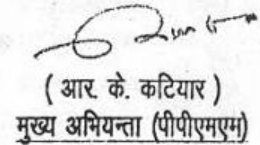 ( आर. के. कटियार )
मुख्य अभियन्ता (पीपीएमएम)